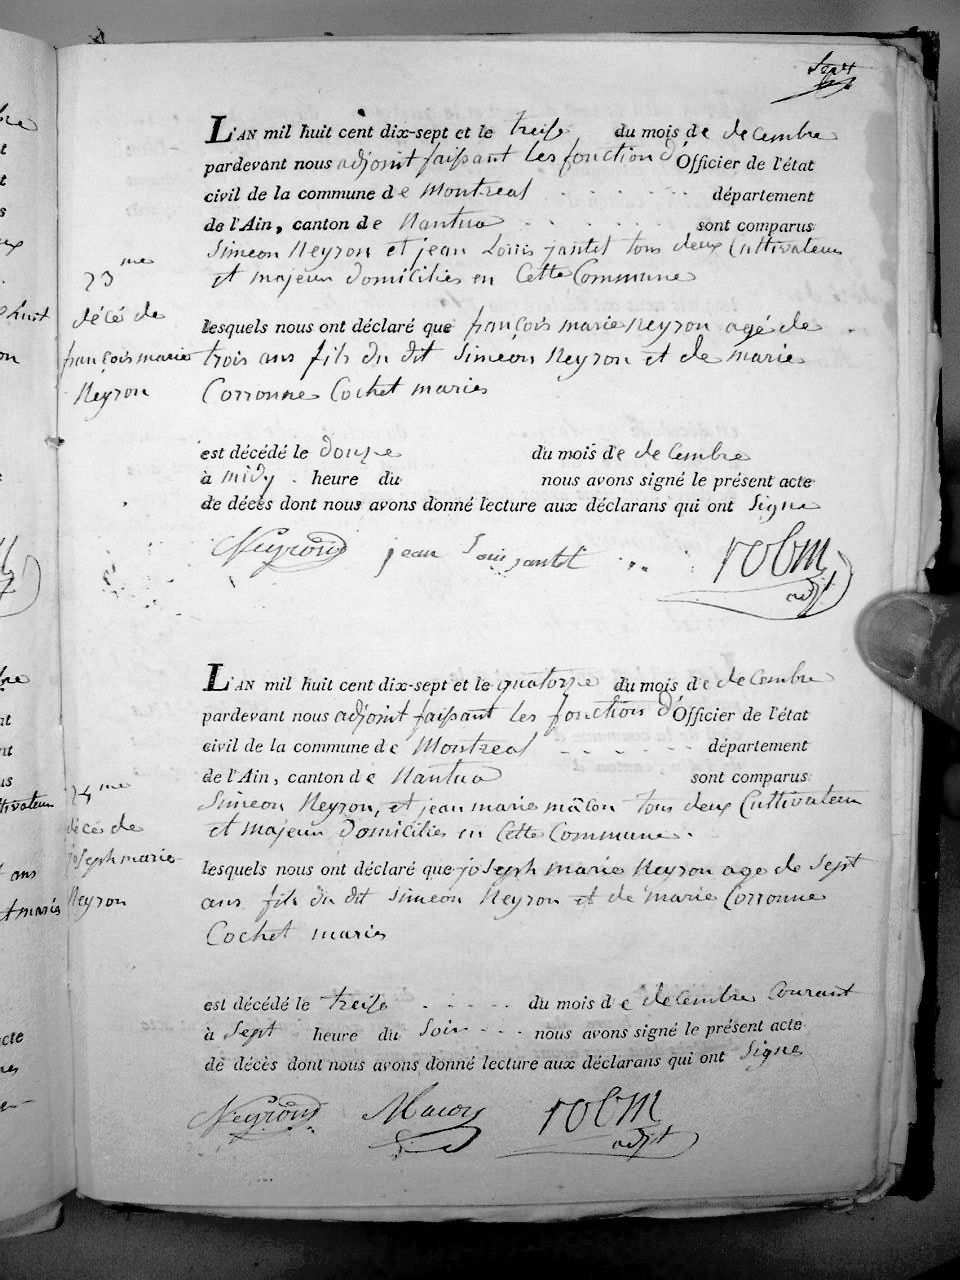 Sept
L'AN mil huit cent dix-sept et le treise du mois de decembre
pardevant nous adjoint faisant les fonction d'Officier de l'état
civil de la commune de Montreal département
de l'Ain, canton de Nantua sont comparus
Simeon Neyron et jean Louis jantet tous deux Cultivateur
et majeur domiciliés en Cette Commune
23me
décé de
françois marie
Neyron
lesquels nous ont déclaré que françois marie Neyron agé de
trois ans fils du dit Siméon Neyron et de marie
Corronne Cochet maries
est décédé le douze du mois de decembre
à midy heure du nous avons signé le présent acte
de décès dont nous avons donné lecture aux déclarans qui ont Signe
Neyron jean Louis jantet
adjt
L'AN mil huit cent dix-sept et le quatorze du mois de decembre
pardevant nous adjoint faisant les fonctions d'Officier de l'état
civil de la commune de Montreal département
de l'Ain, canton de Nantua sont comparus
Simeon Neyron, et jean marie mâcon tous deux Cultivateur
et majeur domiciliés en Cette Commune.
24me
décé de
joseph marie
Neyron
lesquels nous ont déclaré que joseph marie Neyron age de Sept
ans fils du dit Simeon Neyron et de marie Corronne
Cochet maries
est décédé le treise du mois de decembre Courant
à Sept heure du Soir nous avons signé le présent acte
de décès dont nous avons donné lecture aux déclarans qui ont Signe
Neyron Macon
adjt